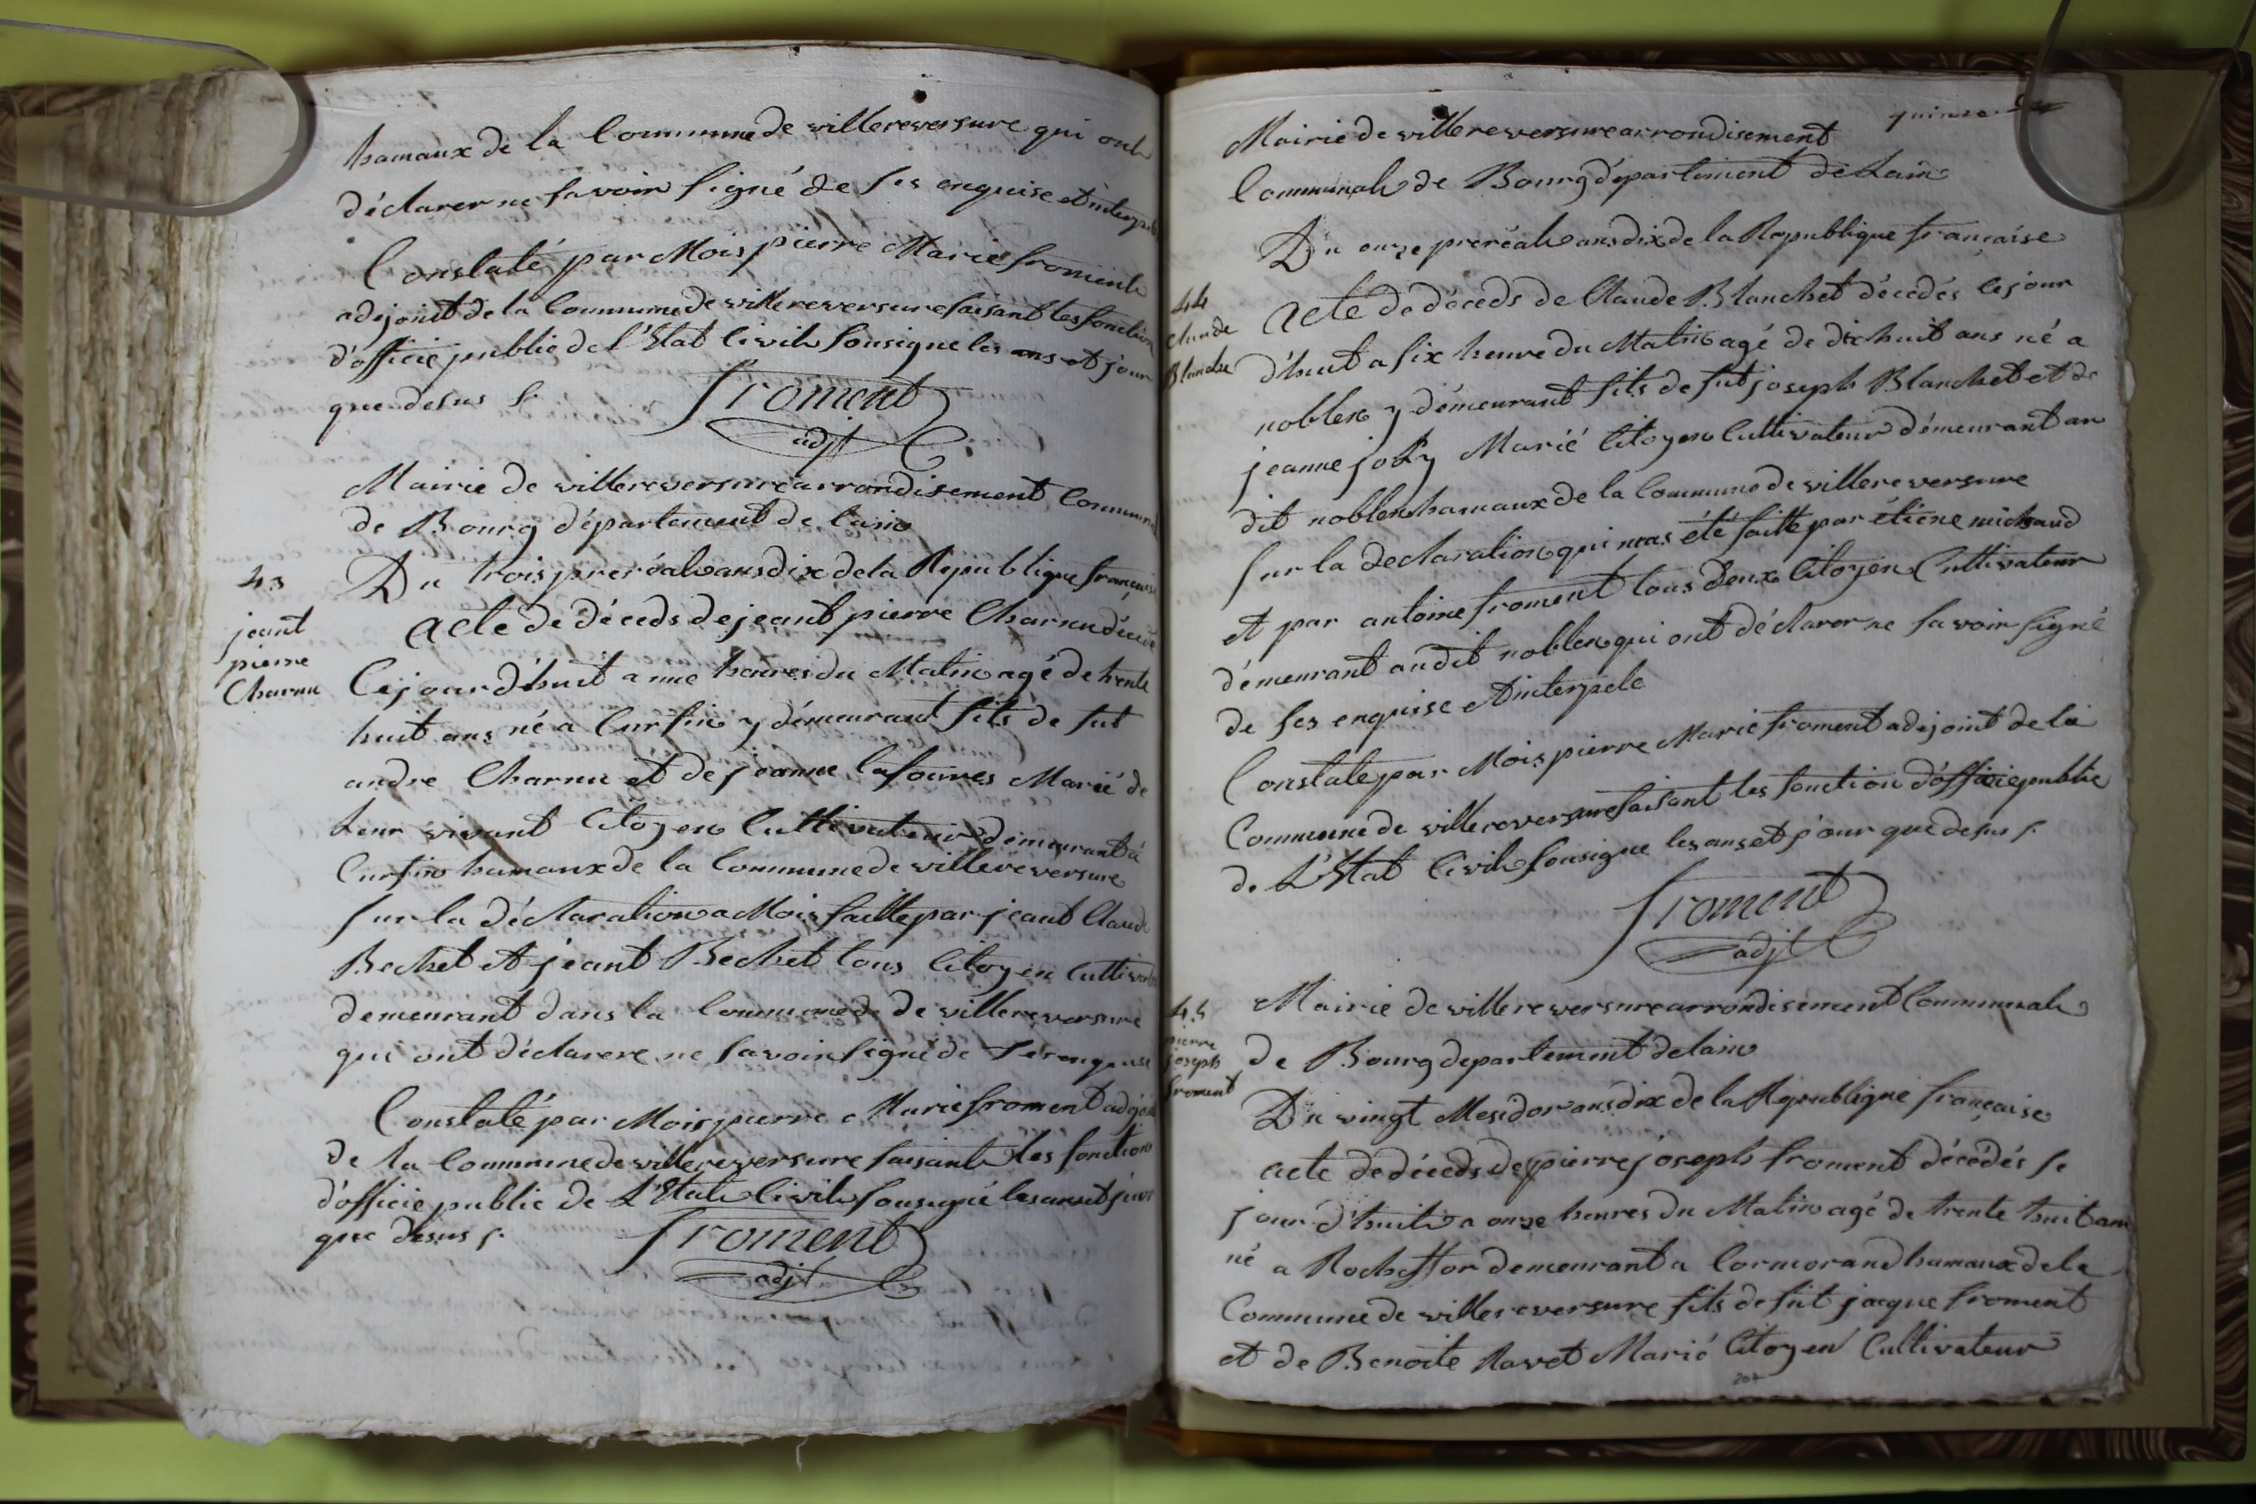 hamaux de la Commune de villereversure qui ont
déclarer ne savoir signé de ses enquise et interpelé
Constaté par Mois pierre Marie froment
adejoint de la Commune de villereversure faisant les fonction
d'officié public de l'Etat Civil sousigne les ans et jour
que desus s.
froment
adjt
Mairie de villereversure arrondisement Communal
de Bourg département de lain
43
jeant
pierre
Charnu
Du trois preréal ans dix de la Republique française
Acte de déceds de jeant pierre Charnu décédé
Cejourd'huit a une heures du Matin agé de trente
huit ans né a Cursin y démeurant fils de fut
andre Charnu et de jeanne Marié de
leur vivant Citoyen Cultivateur démeurant a
Cursin hamaux de la Commune de villereversure
Sur la déclaration a Mois faitte par jeant Claude
Bechet et jeant Bechet tous Citoyen Cultivateur
demeurant dans la Commune de de villereversure
qui ont déclarere ne savoir signé de ses enquise
Constaté par Mois pierre Marie froment adejoint
de la Commune de villereversure faisant les fonction
d'officié public de L'Etat Civil sousigné les ans et jour
que desus s.
froment
adjt
quinze
Mairie de villereversure arrondisement
Communal de Bourg département de Lain
Du onze preréal ans dix de la Republique française
44
Claude
Blanche
Acte de déceds de Claude Blanchet décédés cejour
d'huit a six heure du Matin agé de dix huit ans né a
noblen y démeurant fils de fut joseph Blanchet et de
jeanne joly Marié Citoyen Cultivateur démeurant au
dit noblen hamaux de la Commune de villereversure
Sur la declaration qui mas été faitte par étiene michaud
et par antoine froment tous deux Citoyen Cultivateur
démeurant audit noblen qui ont déclarer ne savoir signé
de ses enquise et interpele
Constate par Mois pierre Marie froment adejoint de la
Commune de villereversure faisant les fonction d'officié public
de L'Etat Civil sousigne les ans et jour que desus s.
froment
adjt
45
pierre
joseph
froment
Mairie de villereversure arrondisement Communal
de Bourg departement de lain
Du vingt Mesidor ans dix de la Republique française
acte de déceds de pierre joseph froment décédés se
jour d'huit a onze heures du Matin agé de trente huit ans
né a Rocheffor demeurant a Cormorand hamaux de la
Commune de villereversure fils de fut jacque froment
et de Benoite Ravet Marié Citoyen Cultivateur